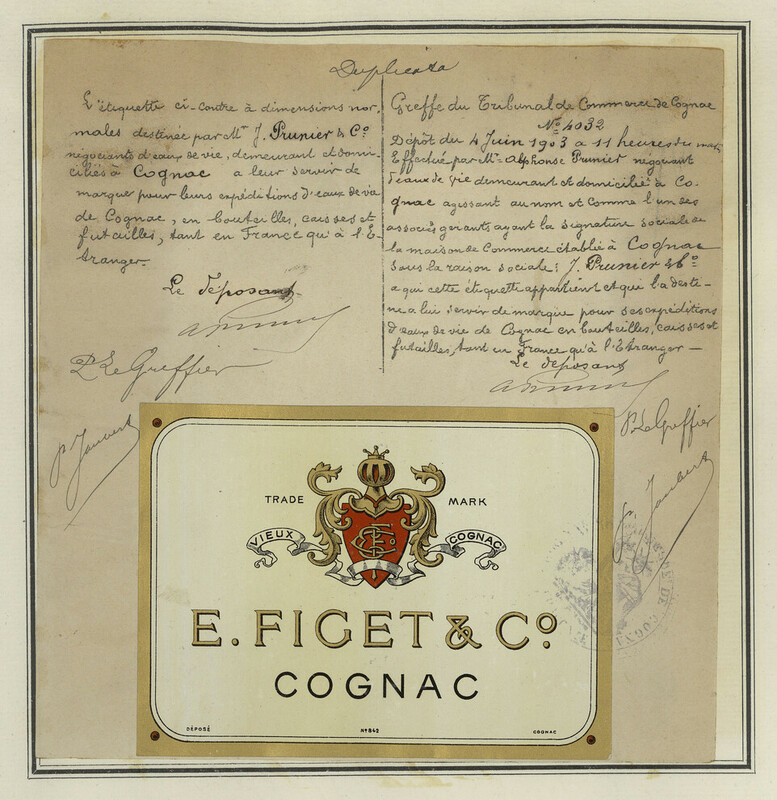 Duplicata
L'étiquette ci-contre à dimensions nor-
males destinée par Mrs J. Prunier & Co
négociants d'eaux de vie, demeurant et domi-
ciliés à Cognac a leur servir de
marque pour leurs expéditions d'eaux de vie
de Cognac, en bouteilles, caisses et
futailles, tant en France qu'à l'E-
tranger.
Le déposant
P. Le Greffier
P. Jaubert
Greffe du Tribunal de Commerce de Cognac
No 4032
Dépôt du 4 Juin 1903 à 11 heures du mat
Effectué par Mr Alphonse Prunier négociant
d'eaux de vie demeurant et domicilié à Co-
gnac agissant au nom et comme l'un des
associés gérants ayant la signature sociale de
la maison de Commerce établie à Cognac
sous la raison sociale: J. Prunier & Co
a qui cette étiquette appartient et qui la desti-
ne a lui servir de marque pour ses expéditions
d'eaux de vie de Cognac en bouteilles, caisses et
futailles, tant en France qu'à l'Etranger —
Le déposant
P. Le Greffier
P. Jaubert
TRADE MARK
VIEUX COGNAC
E. FIGET & Co
COGNAC
DÉPOSÉ No 842 COGNAC